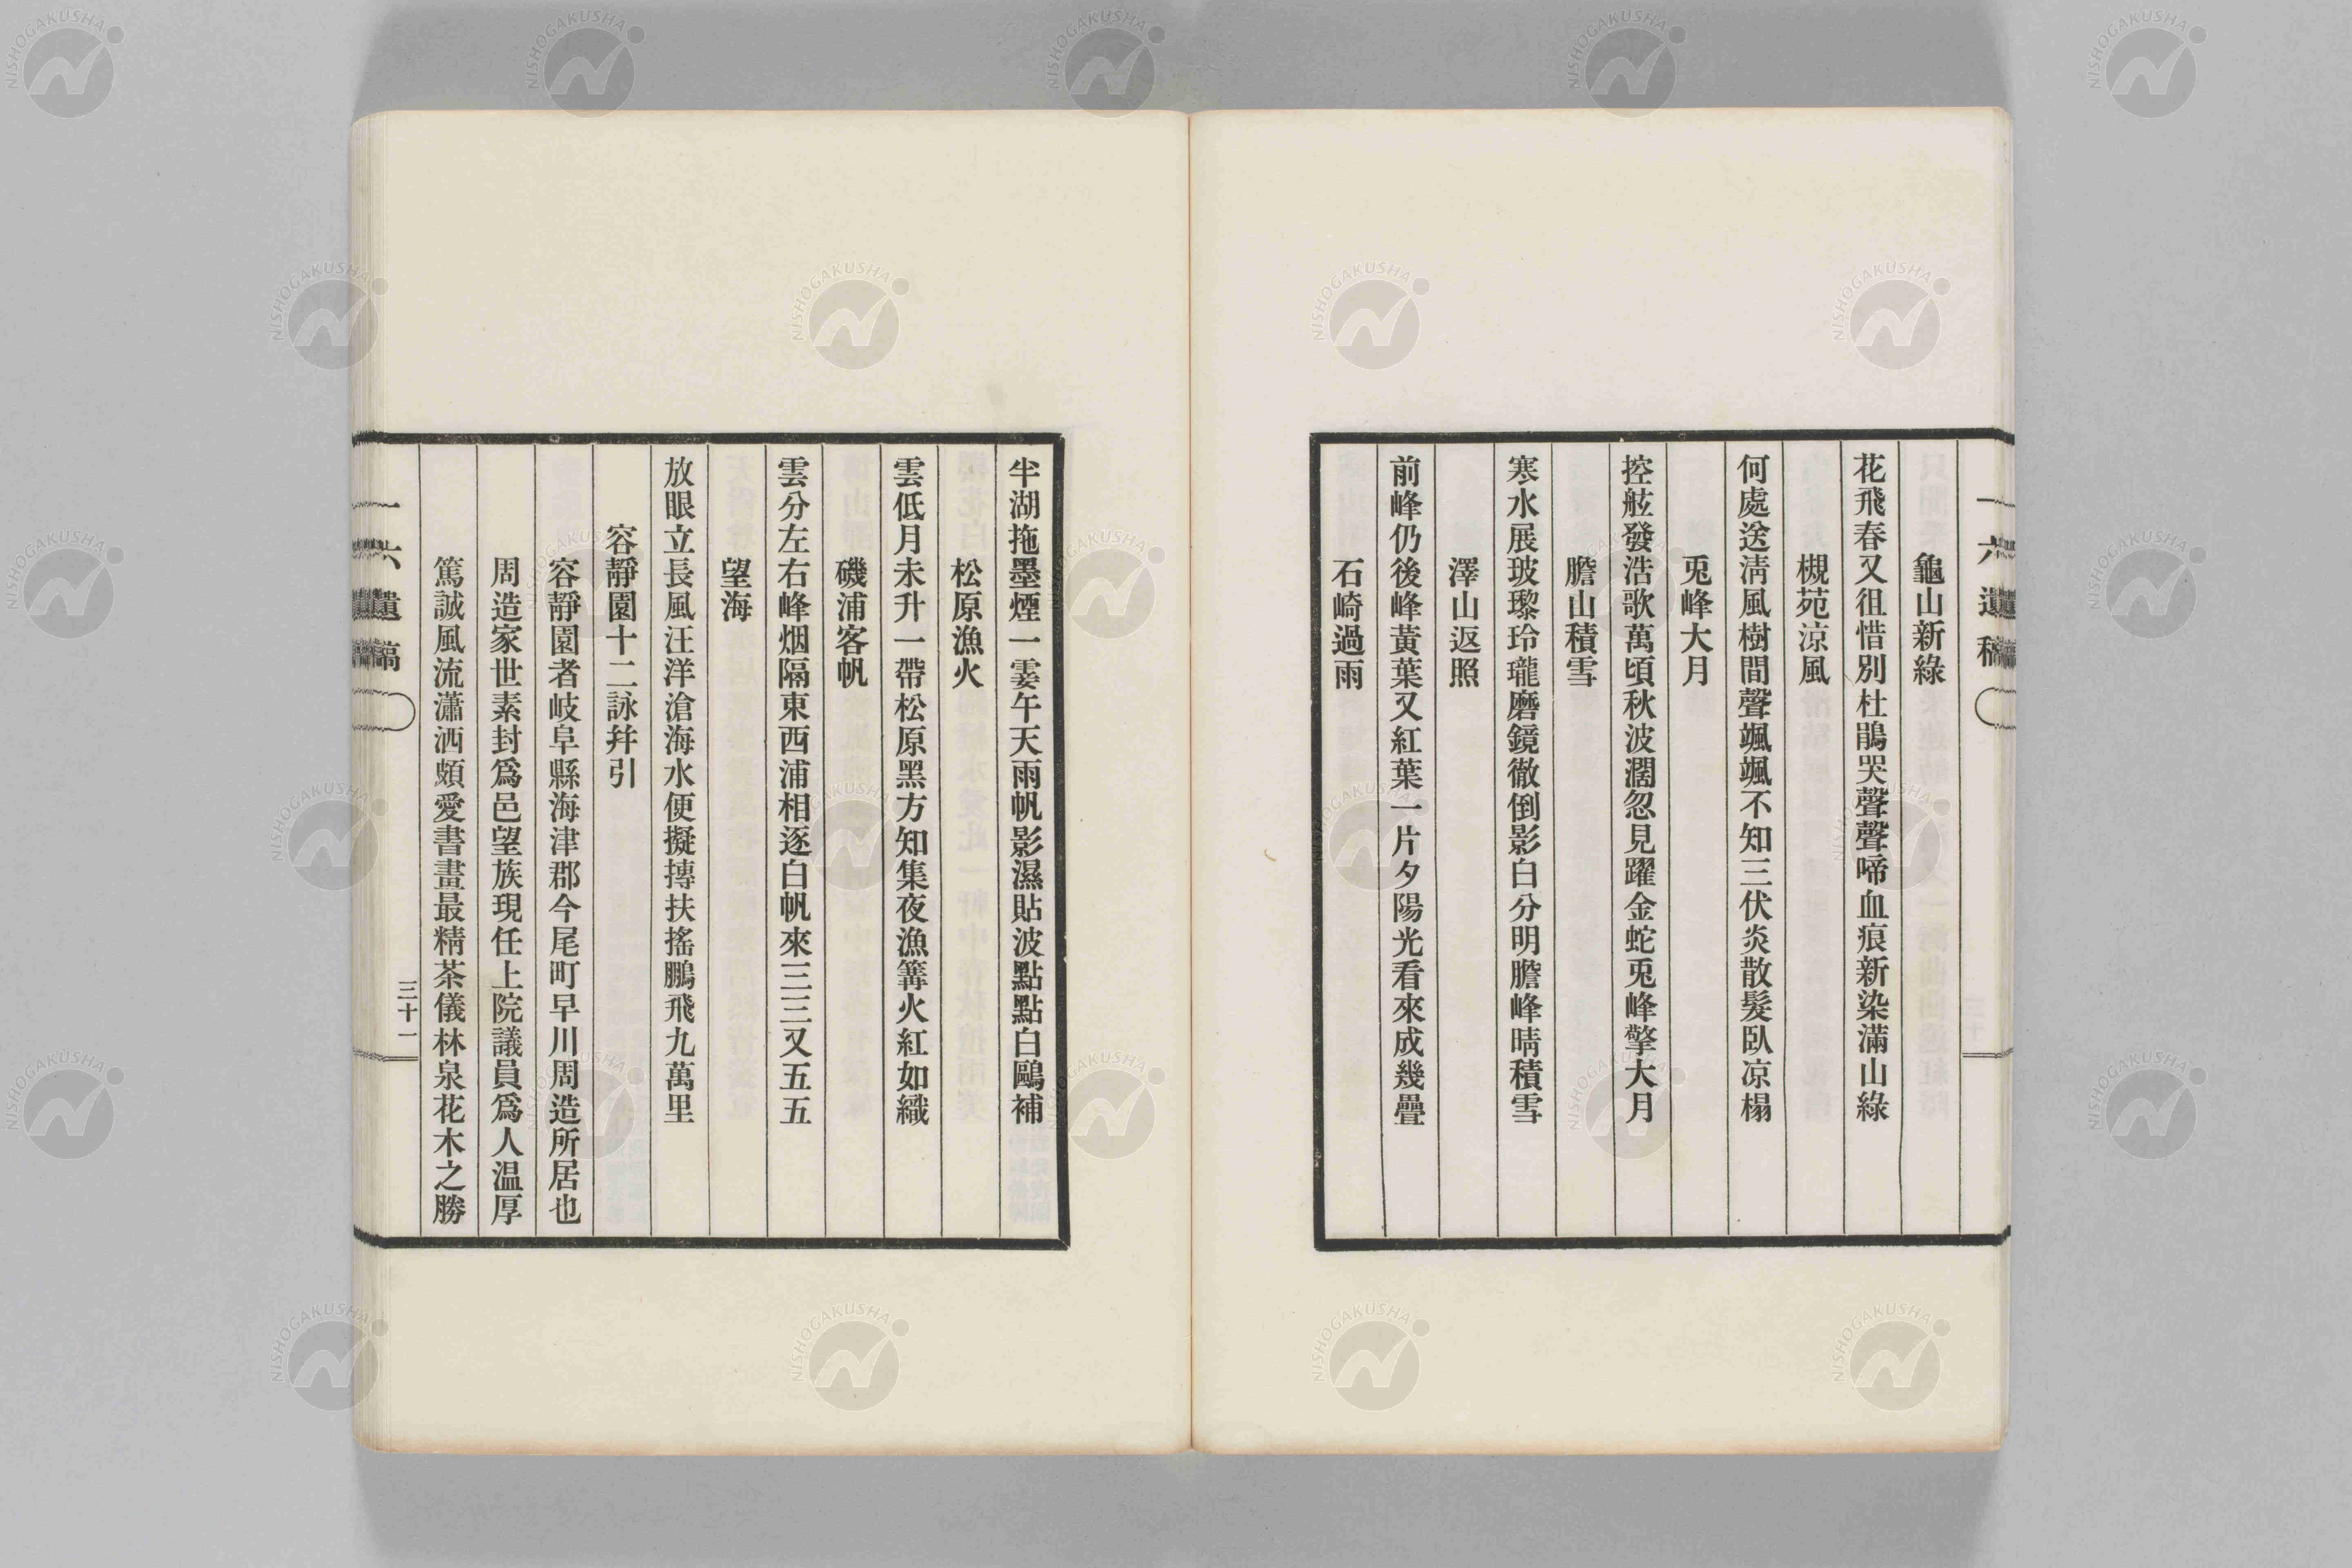 一六遺稿
龜山新綠
花飛春又徂惜別杜鵑哭聲聲啼血痕新染滿山綠
槻苑凉風
何處送淸風樹間聲颯颯不知三伏炎散髮臥凉榻
兎峰大月
控舷發浩歌萬頃秋波濶忽見躍金蛇兎峰擎大月
膽山積雪
寒水展玻瓈玲瓏磨鏡徹倒影白分明膽峰晴積雪
澤山返照
前峰仍後峰黃葉又紅葉一片夕陽光看來成幾疊
石崎過雨
半湖拖墨煙一霎午天雨帆影濕貼波點點白鷗補
松原漁火
雲低月未升一帶松原黑方知集夜漁篝火紅如織
磯浦客帆
雲分左右峰烟隔東西浦相逐白帆來三三又五五
望海
放眼立長風汪洋滄海水便擬摶扶搖鵬飛九萬里
容靜園十二詠幷引
容靜園者岐阜縣海津郡今尾町早川周造所居也
周造家世素封爲邑望族現任上院議員爲人温厚
篤誠風流瀟洒頗愛書畫最精茶儀林泉花木之勝
一六遺稿
三十一
NISHOGAKUSHA